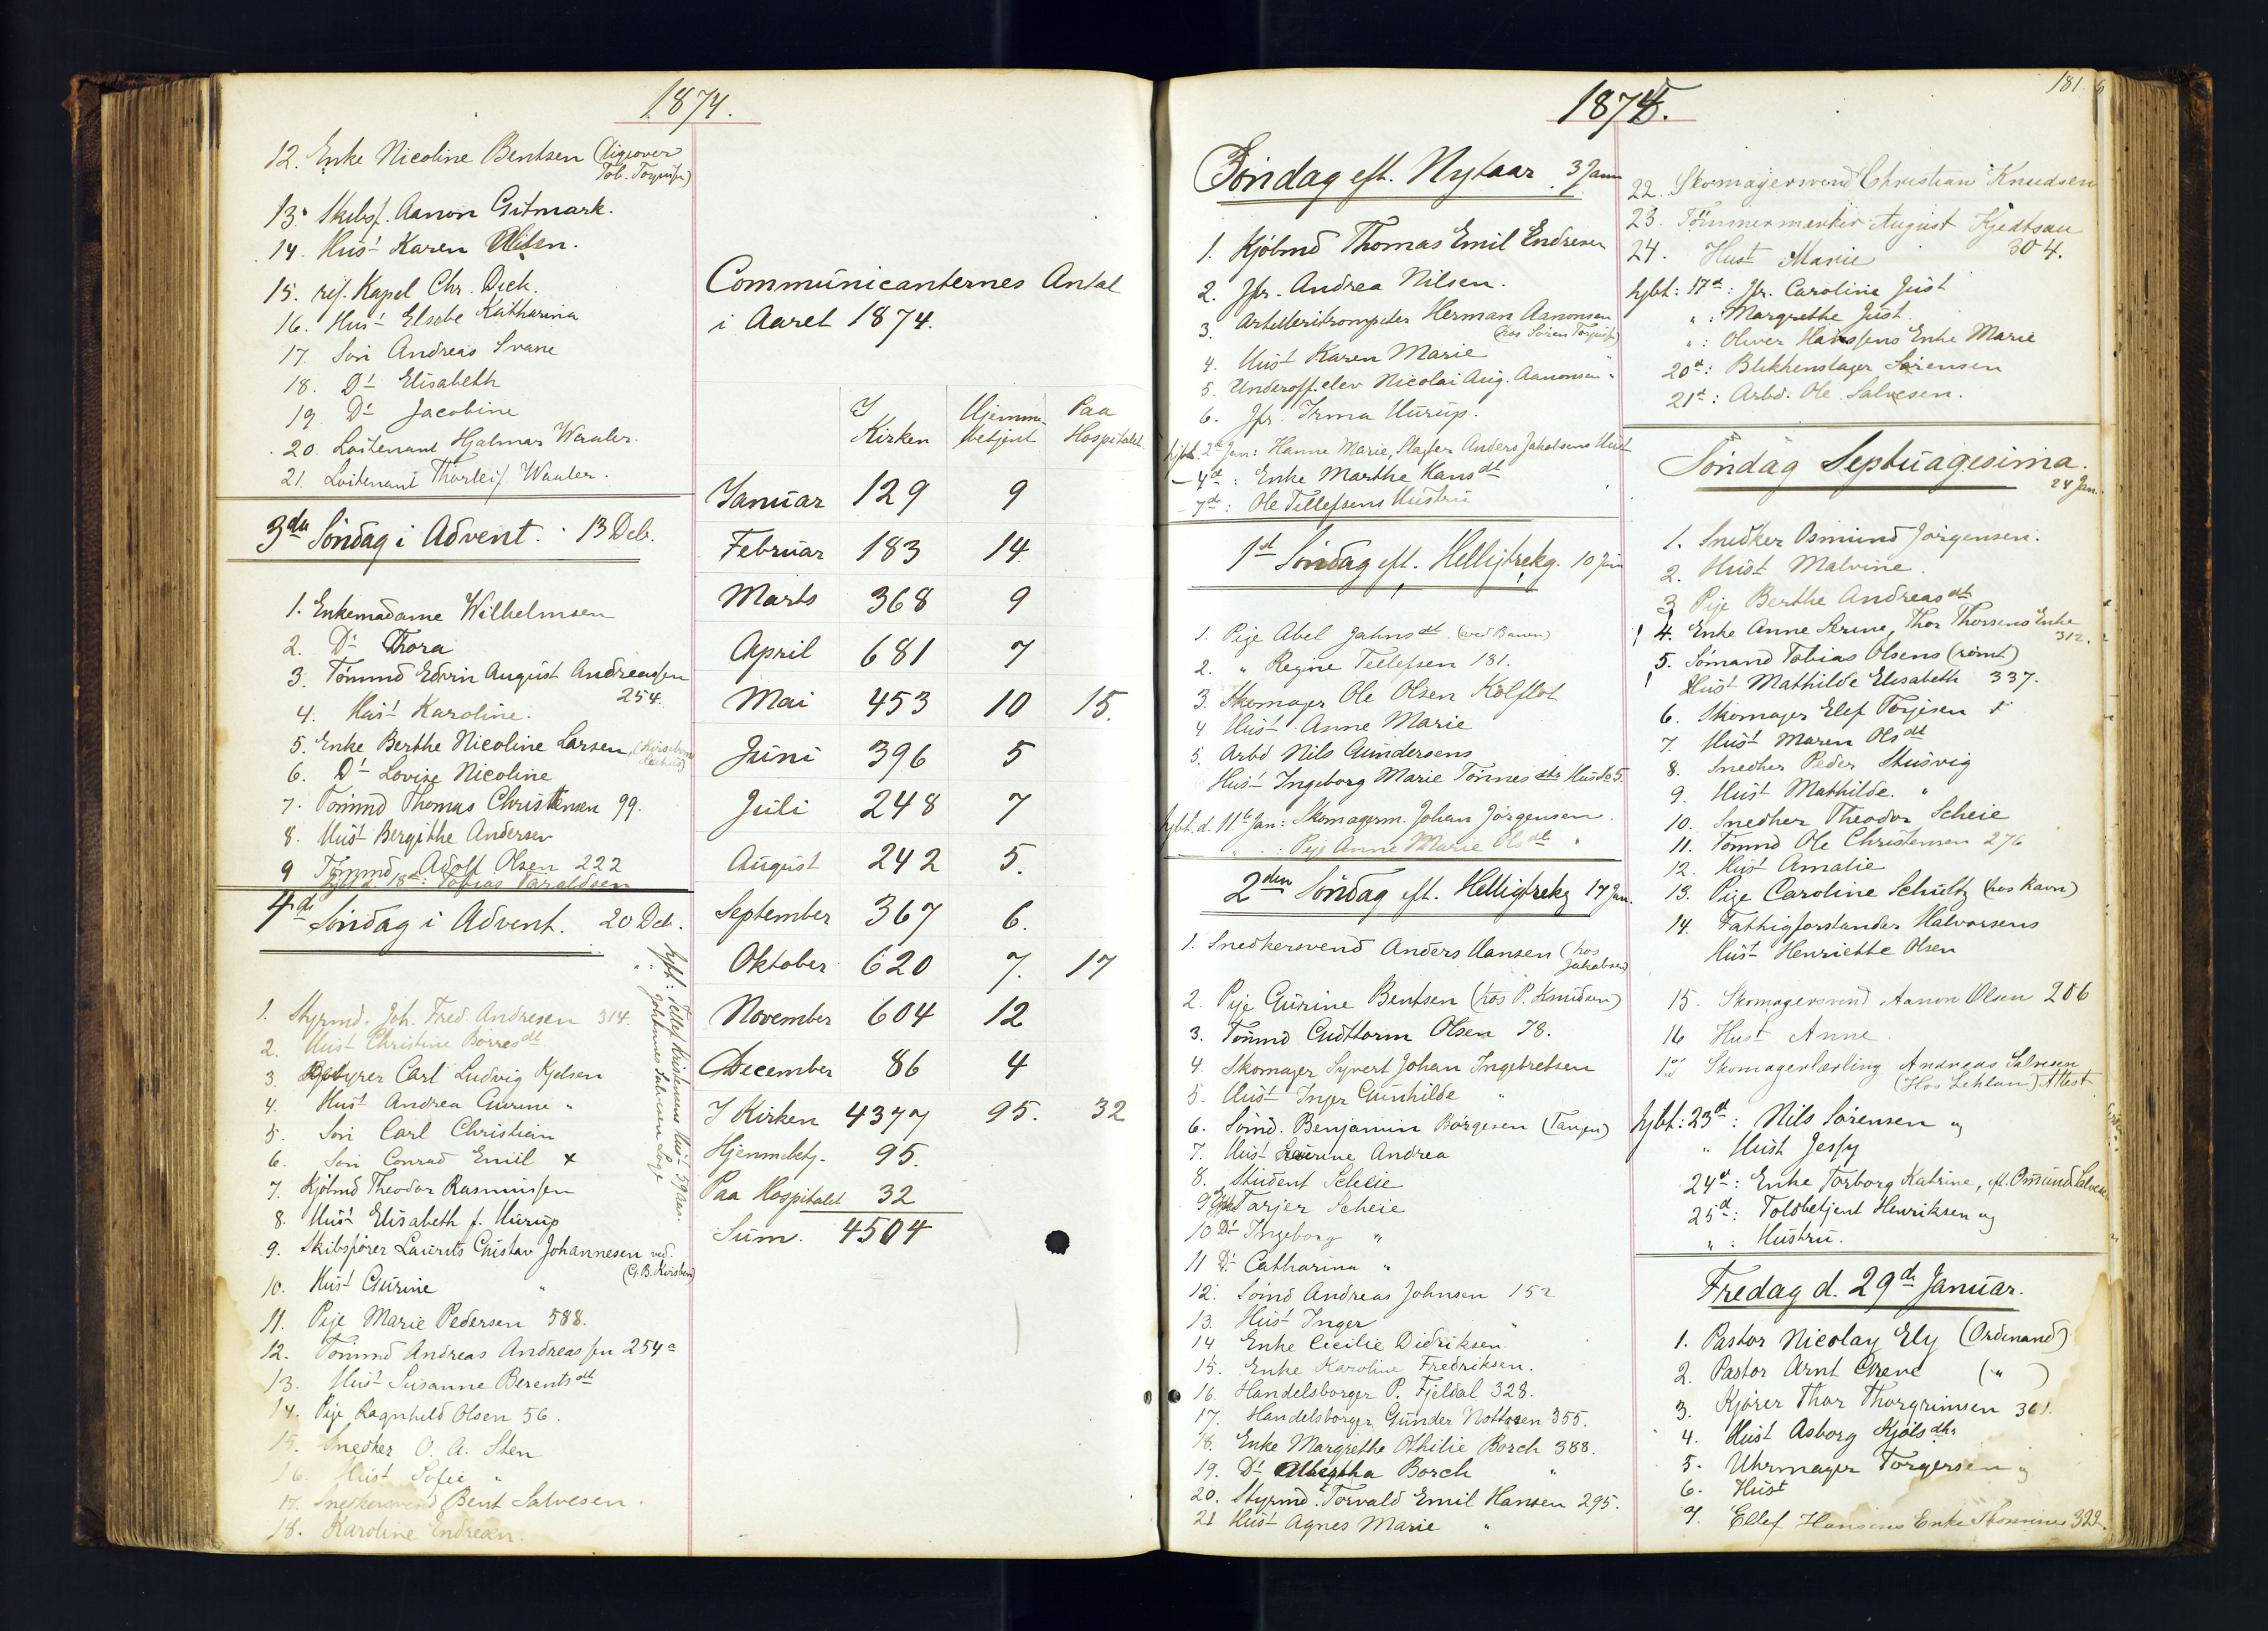 1874.
12. Enke Nicoline Bentsen (ligeover
Tob. Torjusen)
13. Skibsf. Aanon Gitmark.
14. Hust Karen Olsen.
15. res. Kapel Chr. Dick.
16. Hust Elsebe Katharina
17. Søn Andreas Svane
18. Dt Elisabeth
19. Dt Jacobine
20. Loitenant Hjalmar Waaler.
21. Loitenant Thorleif Waaler.
3die Søndag i Advent. 13 Deb.
1. Enkemadame Wilhelmsen
2. Dt Thora
3. Tømmd Edvin August Andreassen
254.
4. Hust Karoline.
5. Enke Berthe Nicoline Larsen,
6. Dt Lovise Nicoline
7. Tømmd Thomas Christensen 99.
8. Hust Bergithe Andersen
9 Tømmd Adolf Olsen 222
hjbt d. 18de: Tobias Taraldsen
4de Søndag i Advent. 20 Deb.
hjbt: Tellef Kristensens Hust 59 aar.
" Johannes Salvesen Loge
1. Styrmd. Joh. Fred. Andresen 314.
2. Hust Christine Børresdt
3. Carl Ludvig Kjelsen
4. Hust Andrea Gurine "
5. Søn Carl Christian
6. Søn Conrad Emil x
7. Kjøbmd Theodor Rasmussen
8. Hust Elisabeth f. Hurup
9. Skibsfører Laurits Gustav Johannesen ved.
(G. B. Kirsten)
10. Hust Gurine "
11. Pige Marie Pedersen 588.
12. Tømmd Andreas Andreassen 254a
13. Hust Susanne Berentsdt
14. Pige Ragnhild Olsen 56.
15. Snedker O. A. Sten
16. Hust Sofie "
17. Snedkersvend Bent Salvesen.
18. Karoline Endresen.
Communicanternes Antal
i Aaret 1874.
I Kirken Hjemme betjent Paa Hospitalet
Januar 129 9
Februar 183 14
Marts 368 9
April 681 7
Mai 453 10 15.
Juni 396 5
Juli 248 7
August 242 5.
September 367 6.
Oktober 620 7. 17
November 604 12
December 86 4
I Kirken 4377 95. 32
Hjemmebtj. 95.
Paa Hospitalet 32
Sum. 4504
1875.
181.
Søndag eft. Nytaar 3 Janu
1. Kjøbmd Thomas Emil Endresen
2. Jfr. Andrea Nilsen.
3. Artelleritrompeter Herman Aanonsen
(hos Søren Torjus)
4. Hust Karen Marie "
5. Underoff. elev Nicolai Aug. Aanonsen "
6. Jfr. Irma Hurup.
hjbt. 2de Jan: Hanne Marie, Slagter Anders Jakobsens Hust
- 4de: Enke Marthe Hansdt
- 7de: Ole Tellefsens Hustru
1st Søndag eft. Helligtrekg. 10 Jan
1. Pige Abel Jahnsdt. (ved Banen)
2. " Regine Tellefsen 181.
3. Skomager Ole Olsen Kolflot
4 Hust Anne Marie
5. Arbd Nils Gundersens
Hust Ingeborg Marie Tønnesdtr Hus No 5.
hjbt. d. 11te Jan: Skomagerm. Johan Jørgensen.
" " : Pige Anne Marie Olsdt "
2den Søndag eft. Helligtrekg 17 Jan.
1. Snedkersvend Anders Hansen (hos
Jakobsen)
2. Pige Gurine Bentsen (hos P. Knudsen)
3. Tømmd Guttorm Olsen 78.
4. Skomager Syvert Johan Ingebretsen
5. Hust Inger Gunhilde "
6. Sømd. Benjamin Børgesen (Tangen)
7. Hust Laurine Andrea
8. Student Scheie
9 Tarjer Scheie
10 Dt Ingeborg "
11 Dt Catharina "
12. Sømd Andreas Johnsen 152
13. Hust Inger "
14 Enke Cecilie Didriksen
15. Enke Karoline Fredriksen.
16. Handelsborger P. Fjeldal 328.
17. Handelsborger Gunder Nottosen 355.
18. Enke Margrethe Othilie Borch 388.
19. Dt Albertha Borch "
20. Styrmd. Torvald Emil Hansen 295.
21 Hust Agnes Marie "
22. Skomagersvend Christian Knudsen
23. Tømmermester August Kjedtsau
24. Hust Marie 304.
hjbt: 17de: Jfr. Caroline Just
" : Margrethe Just.
" : Oliver Hanssens Enke Marie
20de: Blikkenslager Sørensen
21de: Arbd. Ole Salvesen.
Søndag Septuagesima.
24 Jan.
1. Snedker Osmund Jørgensen.
2. Hust Malvine.
3 Pige Berthe Andreasdt
4. Enke Anne Serine, Thor Thorsens Enke
312.
5. Sømand Tobias Olsens (rømt)
Hust Mathilde Elisabeth 337.
6. Skomager Elef Torjesen
7. Hust Maren Olsdt
8. Snedker Peder Stusvig
9. Hust Mathilde. "
10. Snedker Theodor Scheie
11. Tømmd Ole Christensen 276
12. Hust Amalie
13. Pige Caroline Schultz (hos Ravn)
14. Fattigforstander Halvorsens
Hust Henriette Olsen
15. Skomagersvend Aanon Olsen 206
16 Hust Anne
17 Skomagerlærling Andreas Salvesen
(Hos Lehland) Attest
hjbt: 23de: Nils Sørensen og
" Hust Jessy
24de: Enke Torborg Katrine, eft. Omund Salvesen
25de: Toldbetjent Henriksen og
" : Hustru.
Fredag d. 29de Januar.
1. Pastor Nicolay Ely (Ordinand)
2. Pastor Arnt Greve ( " )
3. Kjører Thor Thorgrimsen 361.
4. Hust Asborg Kjølsdtr
5. Uhrmager Torgersen og
6. Hust
7. Ellef Hansens Enke 322.